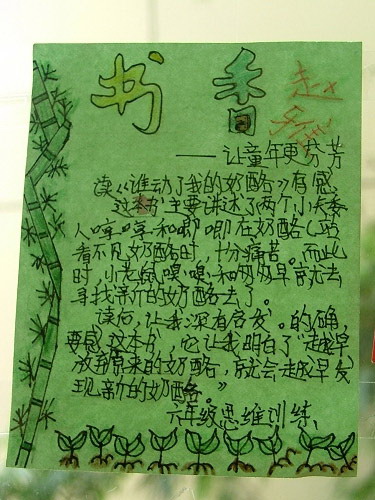 书香
——让童年更芬芳
读《谁动了我的奶酪》有感
这本书主要讲述了两个小矮
人哼哼和唧唧在奶酪C站
看不见奶酪时,十分痛苦。而此
时,小老鼠嗅嗅和匆匆早就去
寻找新的奶酪去了。
读后,让我深有启发。的确,
要感这本书,它让我明白了"越早
放弃原来的奶酪,就会越早发
现新的奶酪。"
六年级思维训练